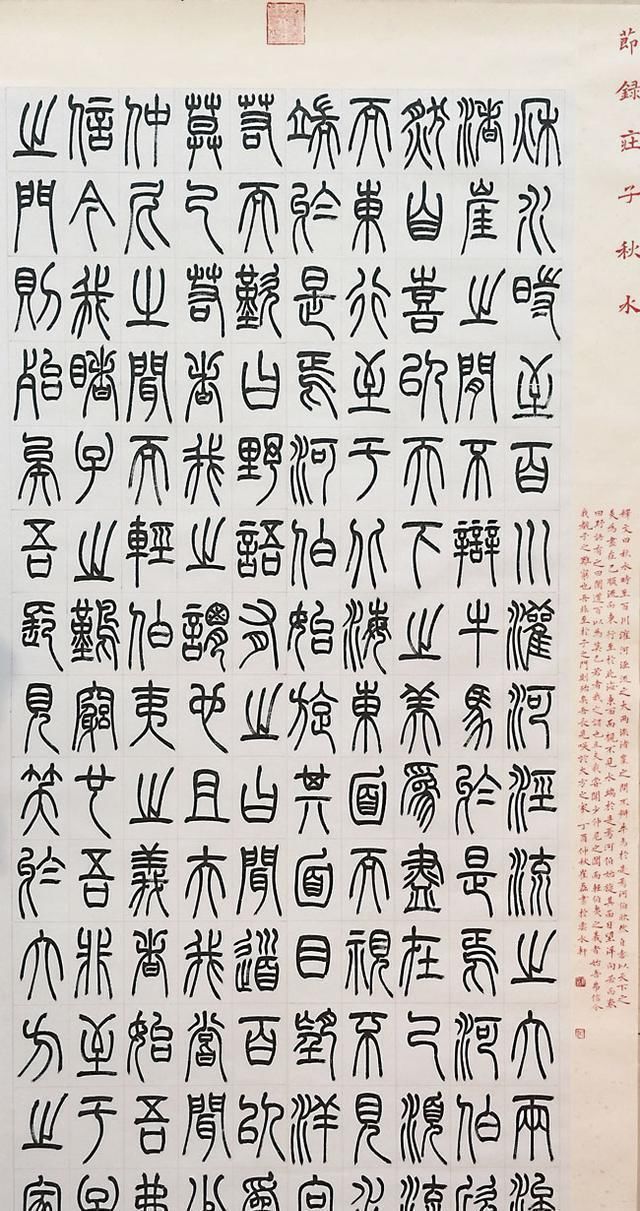 節録莊子秋水
釋文曰秋水時至百川灌河涇流之大兩涘渚崖之間不辨牛馬於是焉河伯欣然自喜以天下之
美為盡在己順流而東行至於北海東面而視不見水端於是焉河伯始旋其面目望洋向若而歎
曰野語有之曰聞道百以為莫己若者我之謂也且夫我嘗聞少仲尼之聞而輕伯夷之義者始吾弗信今
我覩子之難窮也吾非至於子之門則殆矣吾長見笑於大方之家 丁酉仲秋
秋水時至百川灌河涇流之大兩涘
渚崖之間不辯牛馬於是焉河伯欣
然自喜以天下之美為盡在己順流
而東行至于北海東面而視不見水
端於是焉河伯始旋其面目望洋向
若而歎曰野語有之曰聞道百以為
莫己若者我之謂也且夫我嘗聞少
仲尼之聞而輕伯夷之義者始吾弗
信今我睹子之難窮也吾非至于子
之門則殆矣吾長見笑於大方之家